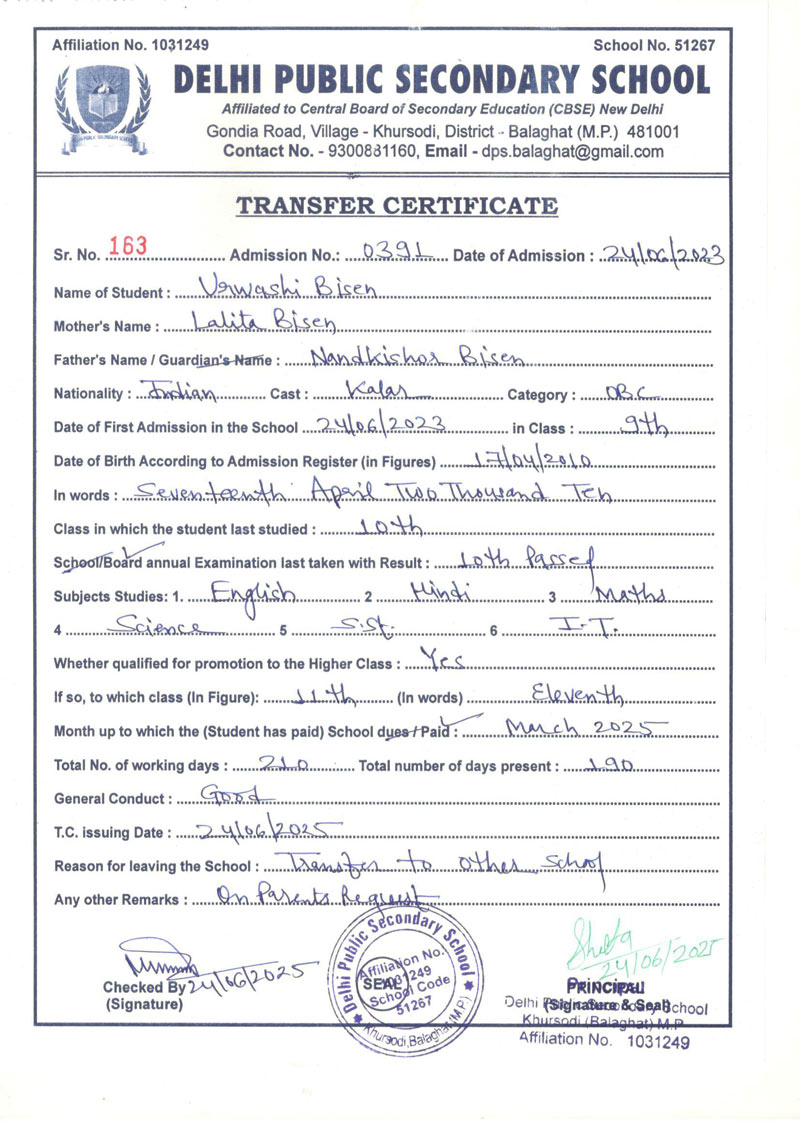 Affiliation No. 1031249 School No. 51267
DELHI PUBLIC SECONDARY SCHOOL
Affiliated to Central Board of Secondary Education (CBSE) New Delhi
Gondia Road, Village - Khursodi, District - Balaghat (M.P.) 481001
Contact No. - 9300831160, Email - dps.balaghat@gmail.com
TRANSFER CERTIFICATE
Sr. No. 163 Admission No.: 0391 Date of Admission : 24/06/2023
Name of Student : Urwashi Bisen
Mother's Name : Lalita Bisen
Father's Name / Guardian's Name : Nandkishor Bisen
Nationality : Indian Cast : Kalar Category : OBC
Date of First Admission in the School 24/06/2023 in Class : 9th
Date of Birth According to Admission Register (in Figures) 17/04/2010
In words : Seventeenth April Two Thousand Ten
Class in which the student last studied : 10th
School/Board annual Examination last taken with Result : 10th Passed
Subjects Studies: 1. English 2 Hindi 3 Maths
4 Science 5 S.St. 6 I.T.
Whether qualified for promotion to the Higher Class : Yes
If so, to which class (In Figure): 11th (In words) Eleventh
Month up to which the (Student has paid) School dues / Paid : March 2025
Total No. of working days : 210 Total number of days present : 190
General Conduct : Good
T.C. issuing Date : 24/06/2025
Reason for leaving the School : Transfer to other School
Any other Remarks : On Parents Request
Delhi Public Secondary School
Affiliation No.
1031249
SEAL
School Code
51267
Khursodi, Balaghat (M.P.)
24/06/2025
Checked By 24/06/2025
(Signature)
PRINCIPAL
(Signature & Seal)
Delhi Public Secondary School
Khursodi (Balaghat) M.P.
Affiliation No. 1031249